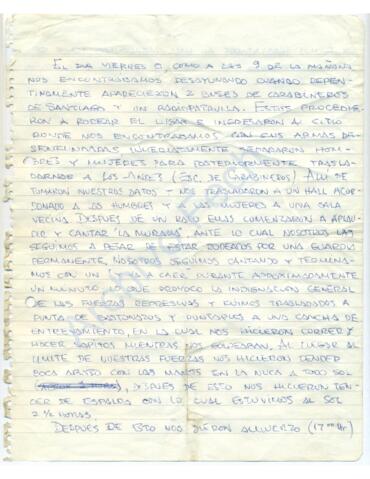 EL DIA VIERNES 8, COMO A LAS 9 DE LA MAÑANA
NOS ENCONTRABAMOS DESAYUNANDO CUANDO REPEN-
TINAMENTE APARECIERON 2 BUSES DE CARABINEROS
DE SANTIAGO Y UN RADIOPATRULLA. ESTOS PROCEDIE-
RON A RODEAR EL LUGAR E INGRESARON AL SITIO
DONDE NOS ENCONTRABAMOS CON SUS ARMAS DE-
SENFUNDADAS INMEDIATAMENTE SEPARARON HOM-
BRES Y MUJERES PARA POSTERIORMENTE TRASLA-
DARNOS A LOS ANDES (ESC. DE CARABINEROS) ALLI SE
TOMARON NUESTROS DATOS Y NOS TRASLADARON A UN HALL
A LOS HOMBRES Y A LAS MUJERES A UNA SALA
VECINA. DESPUES DE UN RATO ELLAS COMENZARON A APLAU-
DIR Y CANTAR "LA MURALLA", ANTE LO CUAL NOSOTROS LAS
SEGUIMOS A PESAR DE ESTAR RODEADOS POR UNA GUARDIA
PERMANENTE, NOSOTROS SEGUIMOS CANTANDO Y TERMINA-
MOS CON UN Y CAER, DURANTE APROXIMADAMENTE
UN MINUTO, QUE PROVOCO LA INDIGNACION GENERAL
DE LAS FUERZAS REPRESIVAS Y FUIMOS TRASLADADOS A
PUNTA DE Y PUNTAPIES A UNA CANCHA DE
ENTRENAMIENTO, EN LA CUAL NOS HICIERON CORRER Y
HACER MIENTRAS NOS GOLPEABAN, AL LLEGAR AL
LIMITE DE NUESTRAS FUERZAS NOS HICIERON TENDER
BOCA ABAJO CON LAS MANOS EN LA NUCA A TODO SOL
, DESPUES DE ESTO NOS HICIERON TEN-
DER DE ESPALDA CON LO CUAL ESTUVIMOS AL SOL
2 1/2 HORAS.
DESPUES DE ESTO NOS DIERON ALMUERZO (17 00 Hr)